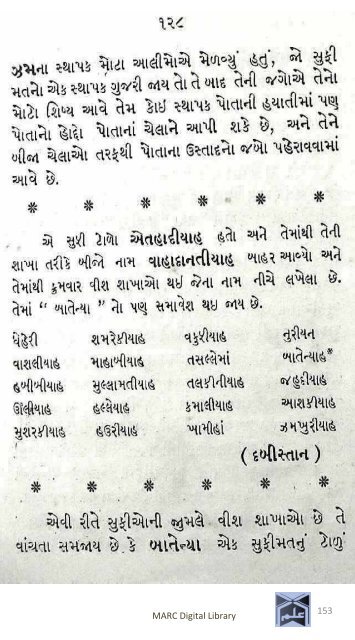 ૧૨૮
ઝમના સ્થાપક મોટા આલીમોએ મેળવ્યું હતું, જો સુફી
મતનો એક સ્થાપક ગુજરી જાય તો તે બાદ તેની જગોએ તેનો
મોટો શિષ્ય આવે તેમ કોઇ સ્થાપક પોતાની હયાતીમાં પણ
પોતાનો હોદ્દો પોતાનાં ચેલાને આપી શકે છે, અને તેને
બીજા ચેલાઓ તરફથી પોતાના ઉસ્તાદનો જબો પહેરાવવામાં
આવે છે.
* * * * * *
એ સુફી ટોળો એતહાદીયાહ હતો અને તેમાંથી તેની
શાખા તરીકે બીજો નામ વાહાદાનતીયાહ બાહર આવ્યો અને
તેમાંથી ક્રમવાર વીશ શાખાઓ થઇ જેના નામ નીચે લખેલા છે.
તેમાં “ બાતેન્યા ” નો પણ સમાવેશ થઇ જાય છે.
ધેહેરી શમરેકીયાહ વકુફીયાહ નુરીયન
વાશલીયાહ માહાબીયાહ તસલ્લેમાં બાતેન્યાહ*
હબીબીયાહ મુલ્લામતીયાહ તલકીનીયાહ જહુદીયાહ
ઊલીયાહ હલ્લેયાહ કમાલીયાહ આશકીયાહ
મુશરકીયાહ હઉરીયાહ ખામીહાં ઝમખુરીયાહ
( દબીસ્તાન )
* * * * * *
એવી રીતે સુફીઓની જુમલે વીશ શાખાઓ છે તે
વાંચતા સમજાય છે કે બાતેન્યા એક સુફીમતનું ટોળું
MARC Digital Library
153